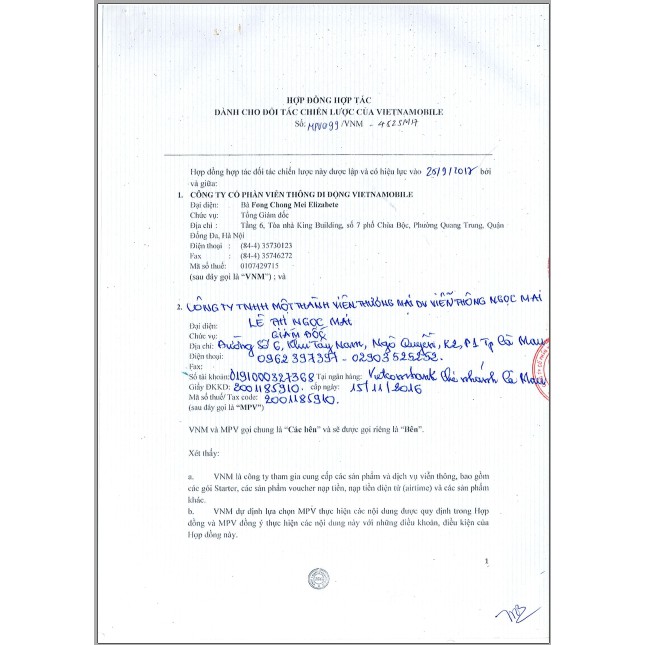 HỢP ĐỒNG HỢP TÁC
DÀNH CHO ĐỐI TÁC CHIẾN LƯỢC CỦA VIETNAMOBILE
Số: MPV099/VNM - 4525M17
Hợp đồng hợp tác đối tác chiến lược này được lập và có hiệu lực vào 25/9/2017 bởi
và giữa:
1. CÔNG TY CỔ PHẦN VIỄN THÔNG DI ĐỘNG VIETNAMOBILE
Đại diện: Bà Fong Chong Mei Elizabete
Chức vụ: Tổng Giám đốc
Địa chỉ : Tầng 6, Tòa nhà King Building, số 7 phố Chùa Bộc, Phường Quang Trung, Quận
Đống Đa, Hà Nội
Điện thoại : (84-4) 35730123
Fax : (84-4) 35746272
Mã số thuế: 0107429715
(sau đây gọi là “VNM”) ; và
2. CÔNG TY TNHH MỘT THÀNH VIÊN THƯƠNG MẠI DV VIỄN THÔNG NGỌC MAI
Đại diện: LÊ THỊ NGỌC MAI
Chức vụ: GIÁM ĐỐC
Địa chỉ: Đường Số 6, Khu Tây Nam, Ngô Quyền, K2, P1 Tp Cà Mau
Điện thoại: 0962397397 - 02903525252.
Fax:
Số tài khoản: 0191000327368 Tại ngân hàng: Vietcombank Chi nhánh Cà Mau
Giấy ĐKKD: 2001185910. cấp ngày: 15/11/2016
Mã số thuế/ Tax code: 2001185910.
(sau đây gọi là “MPV”)
VNM và MPV gọi chung là “Các bên” và sẽ được gọi riêng là “Bên”.
Xét thấy:
a. VNM là công ty tham gia cung cấp các sản phẩm và dịch vụ viễn thông, bao gồm
các gói Starter, các sản phẩm voucher nạp tiền, nạp tiền điện tử (airtime) và các sản phẩm
khác.
b. VNM dự định lựa chọn MPV thực hiện các nội dung được quy định trong Hợp
đồng và MPV đồng ý thực hiện các nội dung này với những điều khoản, điều kiện của
Hợp đồng này.
1